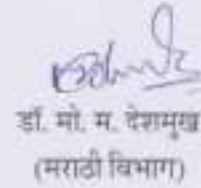 डॉ. मो. म. देशमुख
(मराठी विभाग)